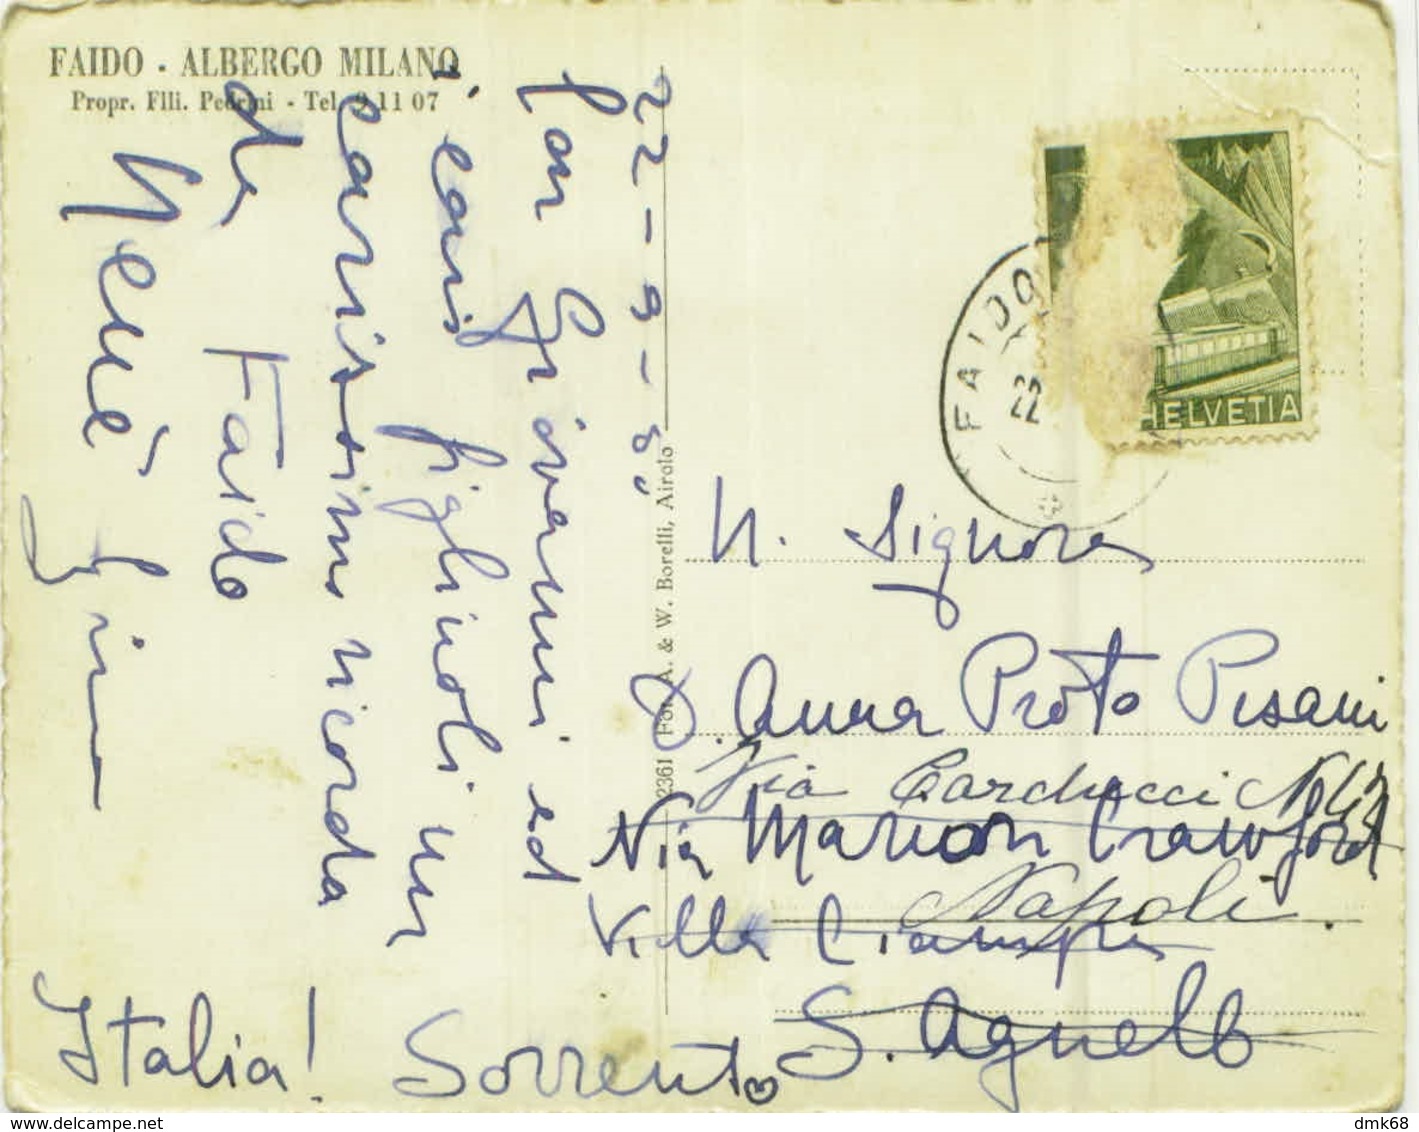 FAIDO - ALBERGO MILANO
Propr. Flli. Pedrini - Tel. 9 11 07
22-9-5
Con Giovanni ed
i cari figliuoli un
carissimo ricordo
da Faido
Nenè Gina
2361 Fot. A. & W. Borelli, Airolo
FAIDO
22
HELVETIA
N. Signora
D. Anna Proto Pisani
Via Carducci N
Via Marion Crawford
Napoli
Villa Ciampa
S. Agnello
Sorrento
Italia!
delcampe.net
dmk68